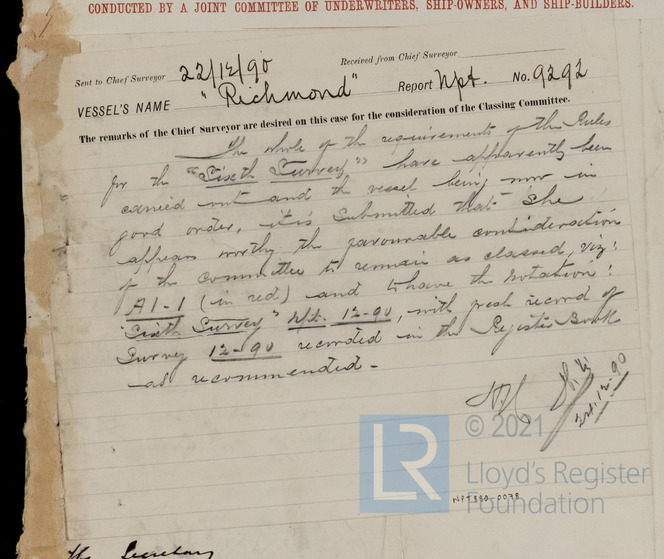 CONDUCTED BY A JOINT COMMITTEE OF UNDERWRITERS, SHIP-OWNERS, AND SHIP-BUILDERS.
Sent to Chief Surveyor 22/12/90 Received from Chief Surveyor
VESSEL'S NAME "Richmond" Report Npt. No. 9292
The remarks of the Chief Surveyor are desired on this case for the consideration of the Classing Committee.
The whole of the requirements of the Rules
for the "Sixth Survey" have apparently been
carried out and the vessel being now in
good order, it is submitted that she
appears worthy the favourable consideration
of the Committee to remain as classed, viz:
A1-1 (in red) and to have the notation:
"Sixth Survey" Npt. 12-90, with fresh record of
Survey 12-90 recorded in the Register Book
as recommended.-
22.12.90
© 2021
LR
Lloyd's Register
Foundation
NPT890-0078
the Secretary